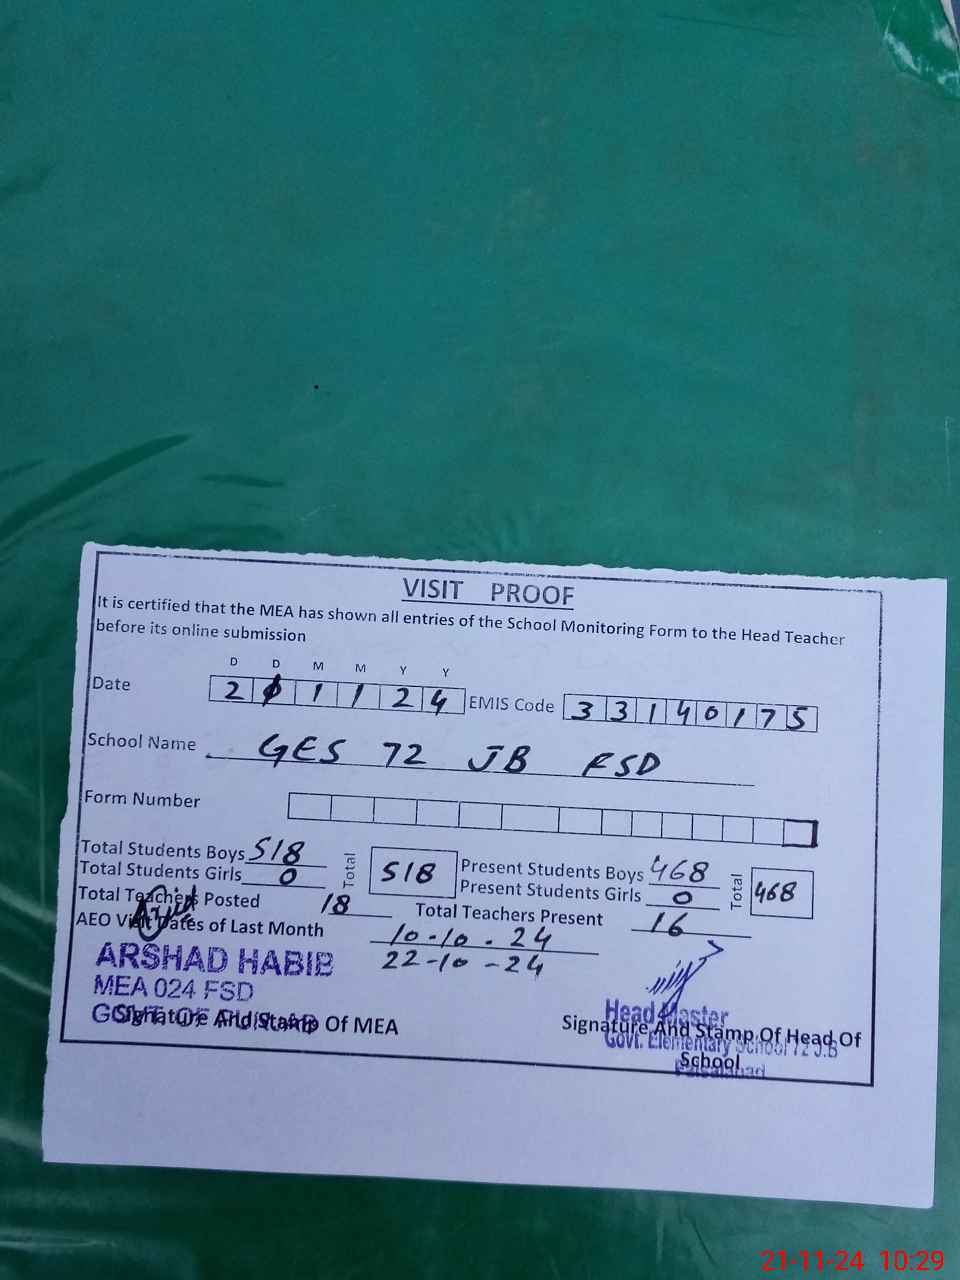 VISIT PROOF
It is certified that the MEA has shown all entries of the School Monitoring Form to the Head Teacher
before its online submission
D D M M Y Y
Date 2 1 1 1 2 4 EMIS Code 3 3 1 4 0 1 7 5
School Name GES 72 JB FSD
Form Number
Total Students Boys 518 Total 518 Present Students Boys 468 Total 468
Total Students Girls 0 Present Students Girls 0
Total Teachers Posted 18 Total Teachers Present 16
AEO Visit Dates of Last Month 10-10-24
22-10-24
ARSHAD HABIB
MEA 024 FSD
GOVT. OF PUNJAB
Signature And Stamp Of MEA
Head Master
Govt. Elementary School 72 J.B
Faisalabad
Signature And Stamp Of Head Of
School
21-11-24 10:29